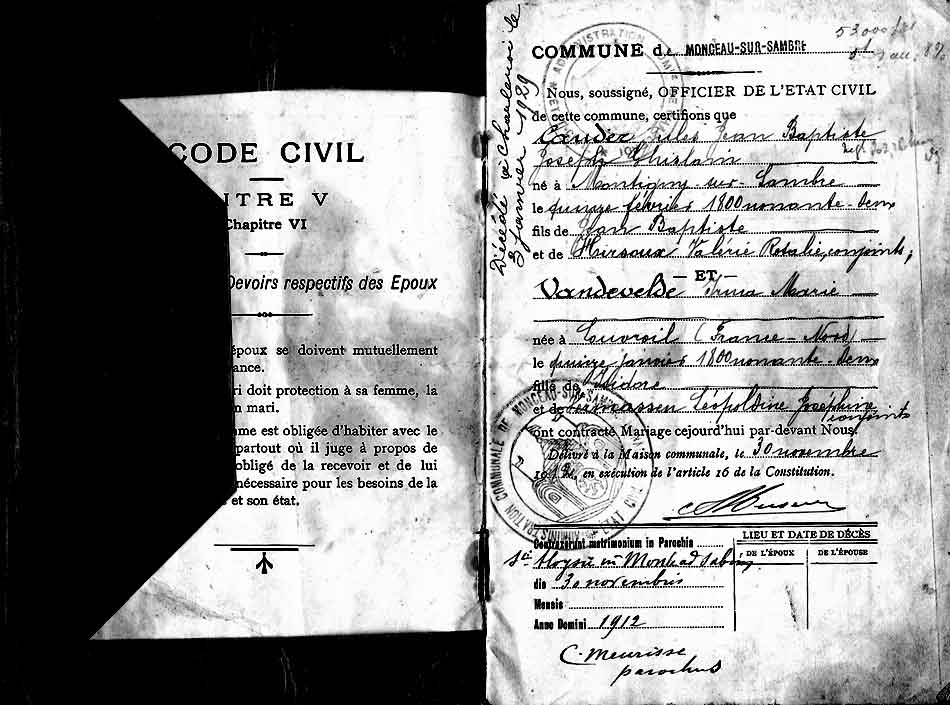 CODE CIVIL
ITRE V
Chapitre VI
Devoirs respectifs des Epoux
époux se doivent mutuellement
ance.
ri doit protection à sa femme, la
n mari.
me est obligée d'habiter avec le
partout où il juge à propos de
obligé de la recevoir et de lui
nécessaire pour les besoins de la
et son état.
Décédé à Charleroi le
3 Janvier 1929
53.000
COMMUNE de MONCEAU-SUR-SAMBRE
Nous, soussigné, OFFICIER DE L'ETAT CIVIL
de cette commune, certifions que
Jules Jean Baptiste
Joseph Ghislain
né à Montigny-sur-Sambre
le quinze février 1800 nonante-deux
fils de Jean Baptiste
et de Hirsoux Valérie Rosalie, conjoints,
— ET —
Vandevelde Irma Marie
née à Louvroil (France-Nord)
le quinze janvier 1800 nonante-deux
fille de Isidore
et de Léopoldine Joséphine
conjoints
ont contracté Mariage cejourd'hui par-devant Nous.
Délivré à la Maison communale, le 30 novembre
1912, en exécution de l'article 16 de la Constitution.
ADMINISTRATION COMMUNALE DE MONCEAU-SUR-SAMBRE
ETAT CIVIL
Contraxerunt matrimonium in Parochia
Sti Aloysii in Monte ad Sabim
die 30 novembris
Mensis
Anno Domini 1912
C. Meurisse
parochus
LIEU ET DATE DE DÉCÈS
DE L'ÉPOUX
DE L'ÉPOUSE